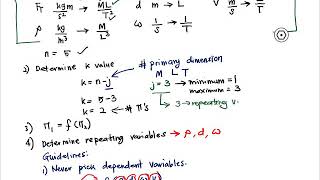 F_T kg m/s² → ML/T²   d m → L   V m/s → L/T
ρ kg/m³ → M/L³   ω 1/s → 1/T
n = 5
2) Determine k value
k = n - j   # primary dimension
M L T
= 5 - 3   j = 3 → minimum = 1
maximum = 3
k = 2   # π's   3 → repeating v.
3) π₁ = f(π₂)
4) Determine repeating variables → ρ, d, ω
Guidelines:
1) Never pick dependent variables.